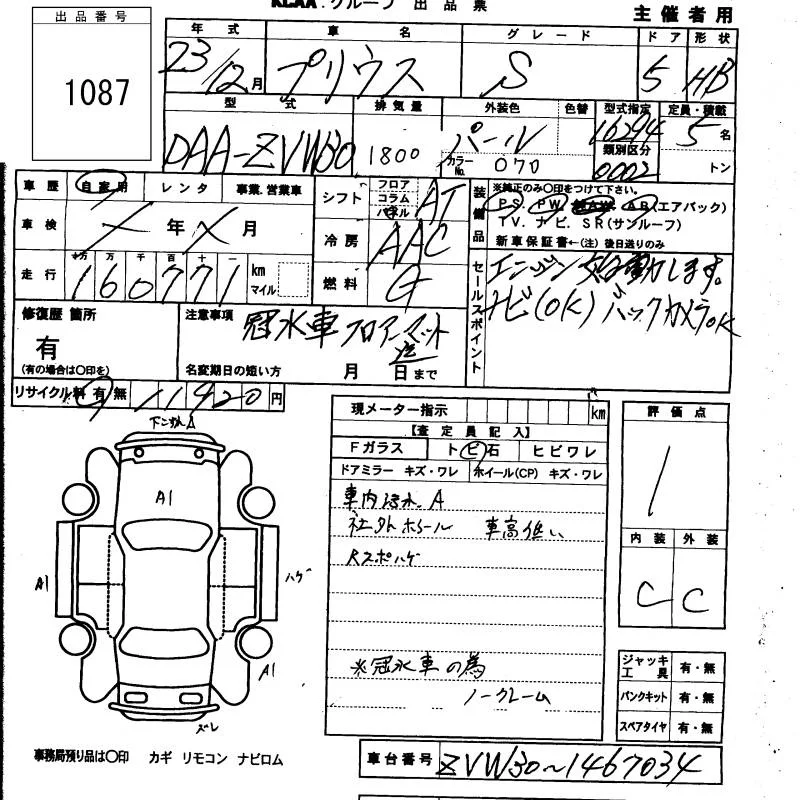 KCAA.グループ 出品票
主催者用
出品番号
1087
年式 車名 グレード ドア 形状
23/12月 プリウス S 5 HB
型式 排気量 外装色 色替 型式指定 定員・積載
DAA-ZVW30 1800 パール 16294 5名
カラーNo. 070 類別区分 0002 トン
車歴 自家用 レンタ 事業、営業車
車検 年 月
走行 十万 万 千 百 十 一
160771 km マイル
シフト フロア コラム パネル AT
冷房 AAC
燃料 G
装備品 ※純正のみ〇印をつけて下さい。
PS. PW. AW. AB(エアバック)
TV. ナビ. SR(サンルーフ)
新車保証書←(注)後日送りのみ
セールスポイント
エンジン始動します。
ナビ(OK) バックカメラOK
修復歴 箇所
有
(有の場合は〇印を)
注意事項
冠水車 フロアーマット迄
名変期日の短い方 月 日まで
リサイクル料 有 無 11920円
下こすれA
A1
A1
ハゲ
A1
ズレ
事務局預り品は〇印 カギ リモコン ナビロム
現メーター指示 km
【査定員記入】
Fガラス トビ石 ヒビワレ
ドアミラー キズ・ワレ ホイール(CP) キズ・ワレ
車内汚れ.A
社外ホイール 車高低い
Rスポハゲ
※冠水車の為
ノークレーム
評価点
1
内装 外装
C C
ジャッキ工具 有・無
パンクキット 有・無
スペアタイヤ 有・無
車台番号 ZVW30~1467034